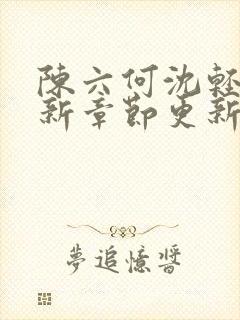 陳六何沈輕
新章節更新
夢追憶醬